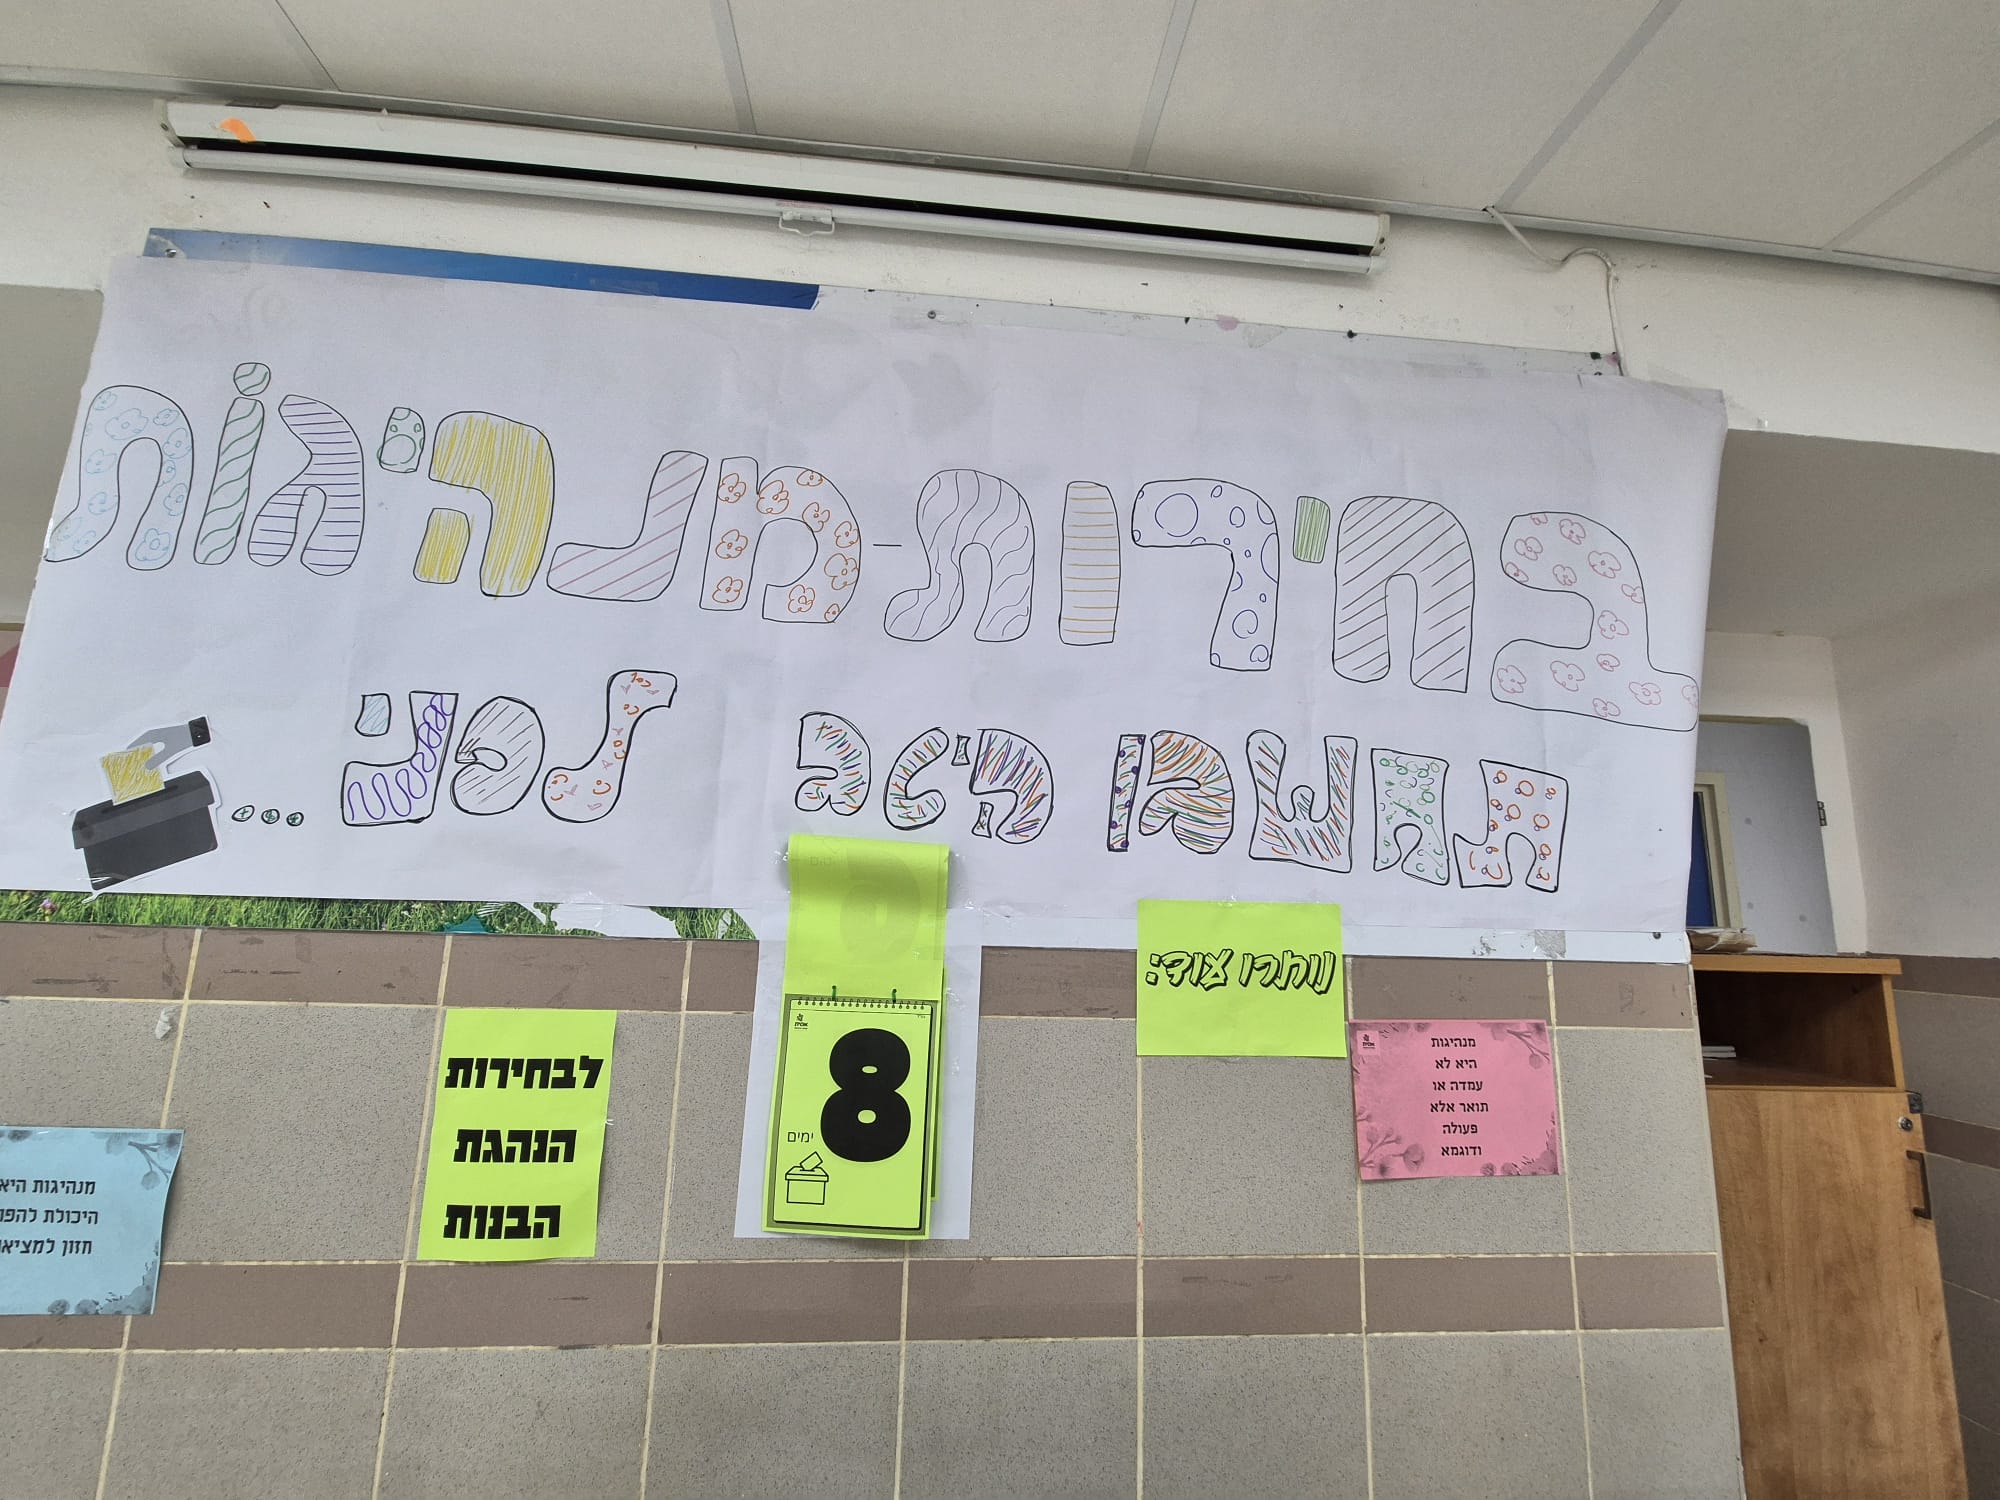 בחירות - מנהיגות
תחשבו היטב לפני...
נותרו עוד:
8
ימים
לבחירות
הנהגת
הבנות
מנהיגות
היא לא
עמדה או
תואר אלא
פעולה
ודוגמא
מנהיגות היא
היכולת
חזון